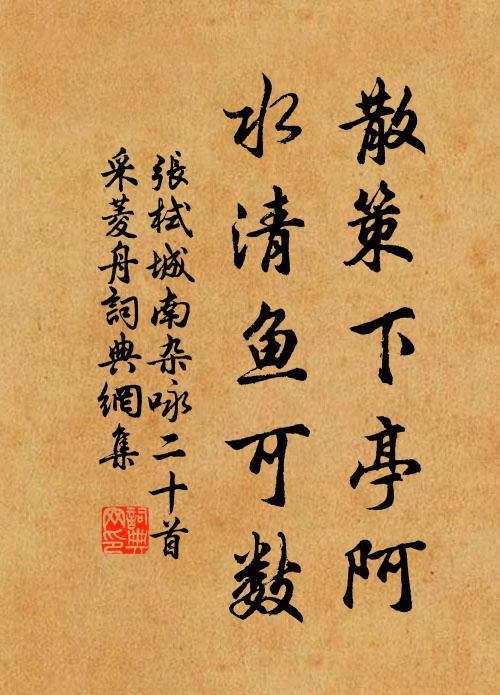 散策下亭阿
水清鱼可数
張栻城南杂咏二十首
采菱舟詞典網集